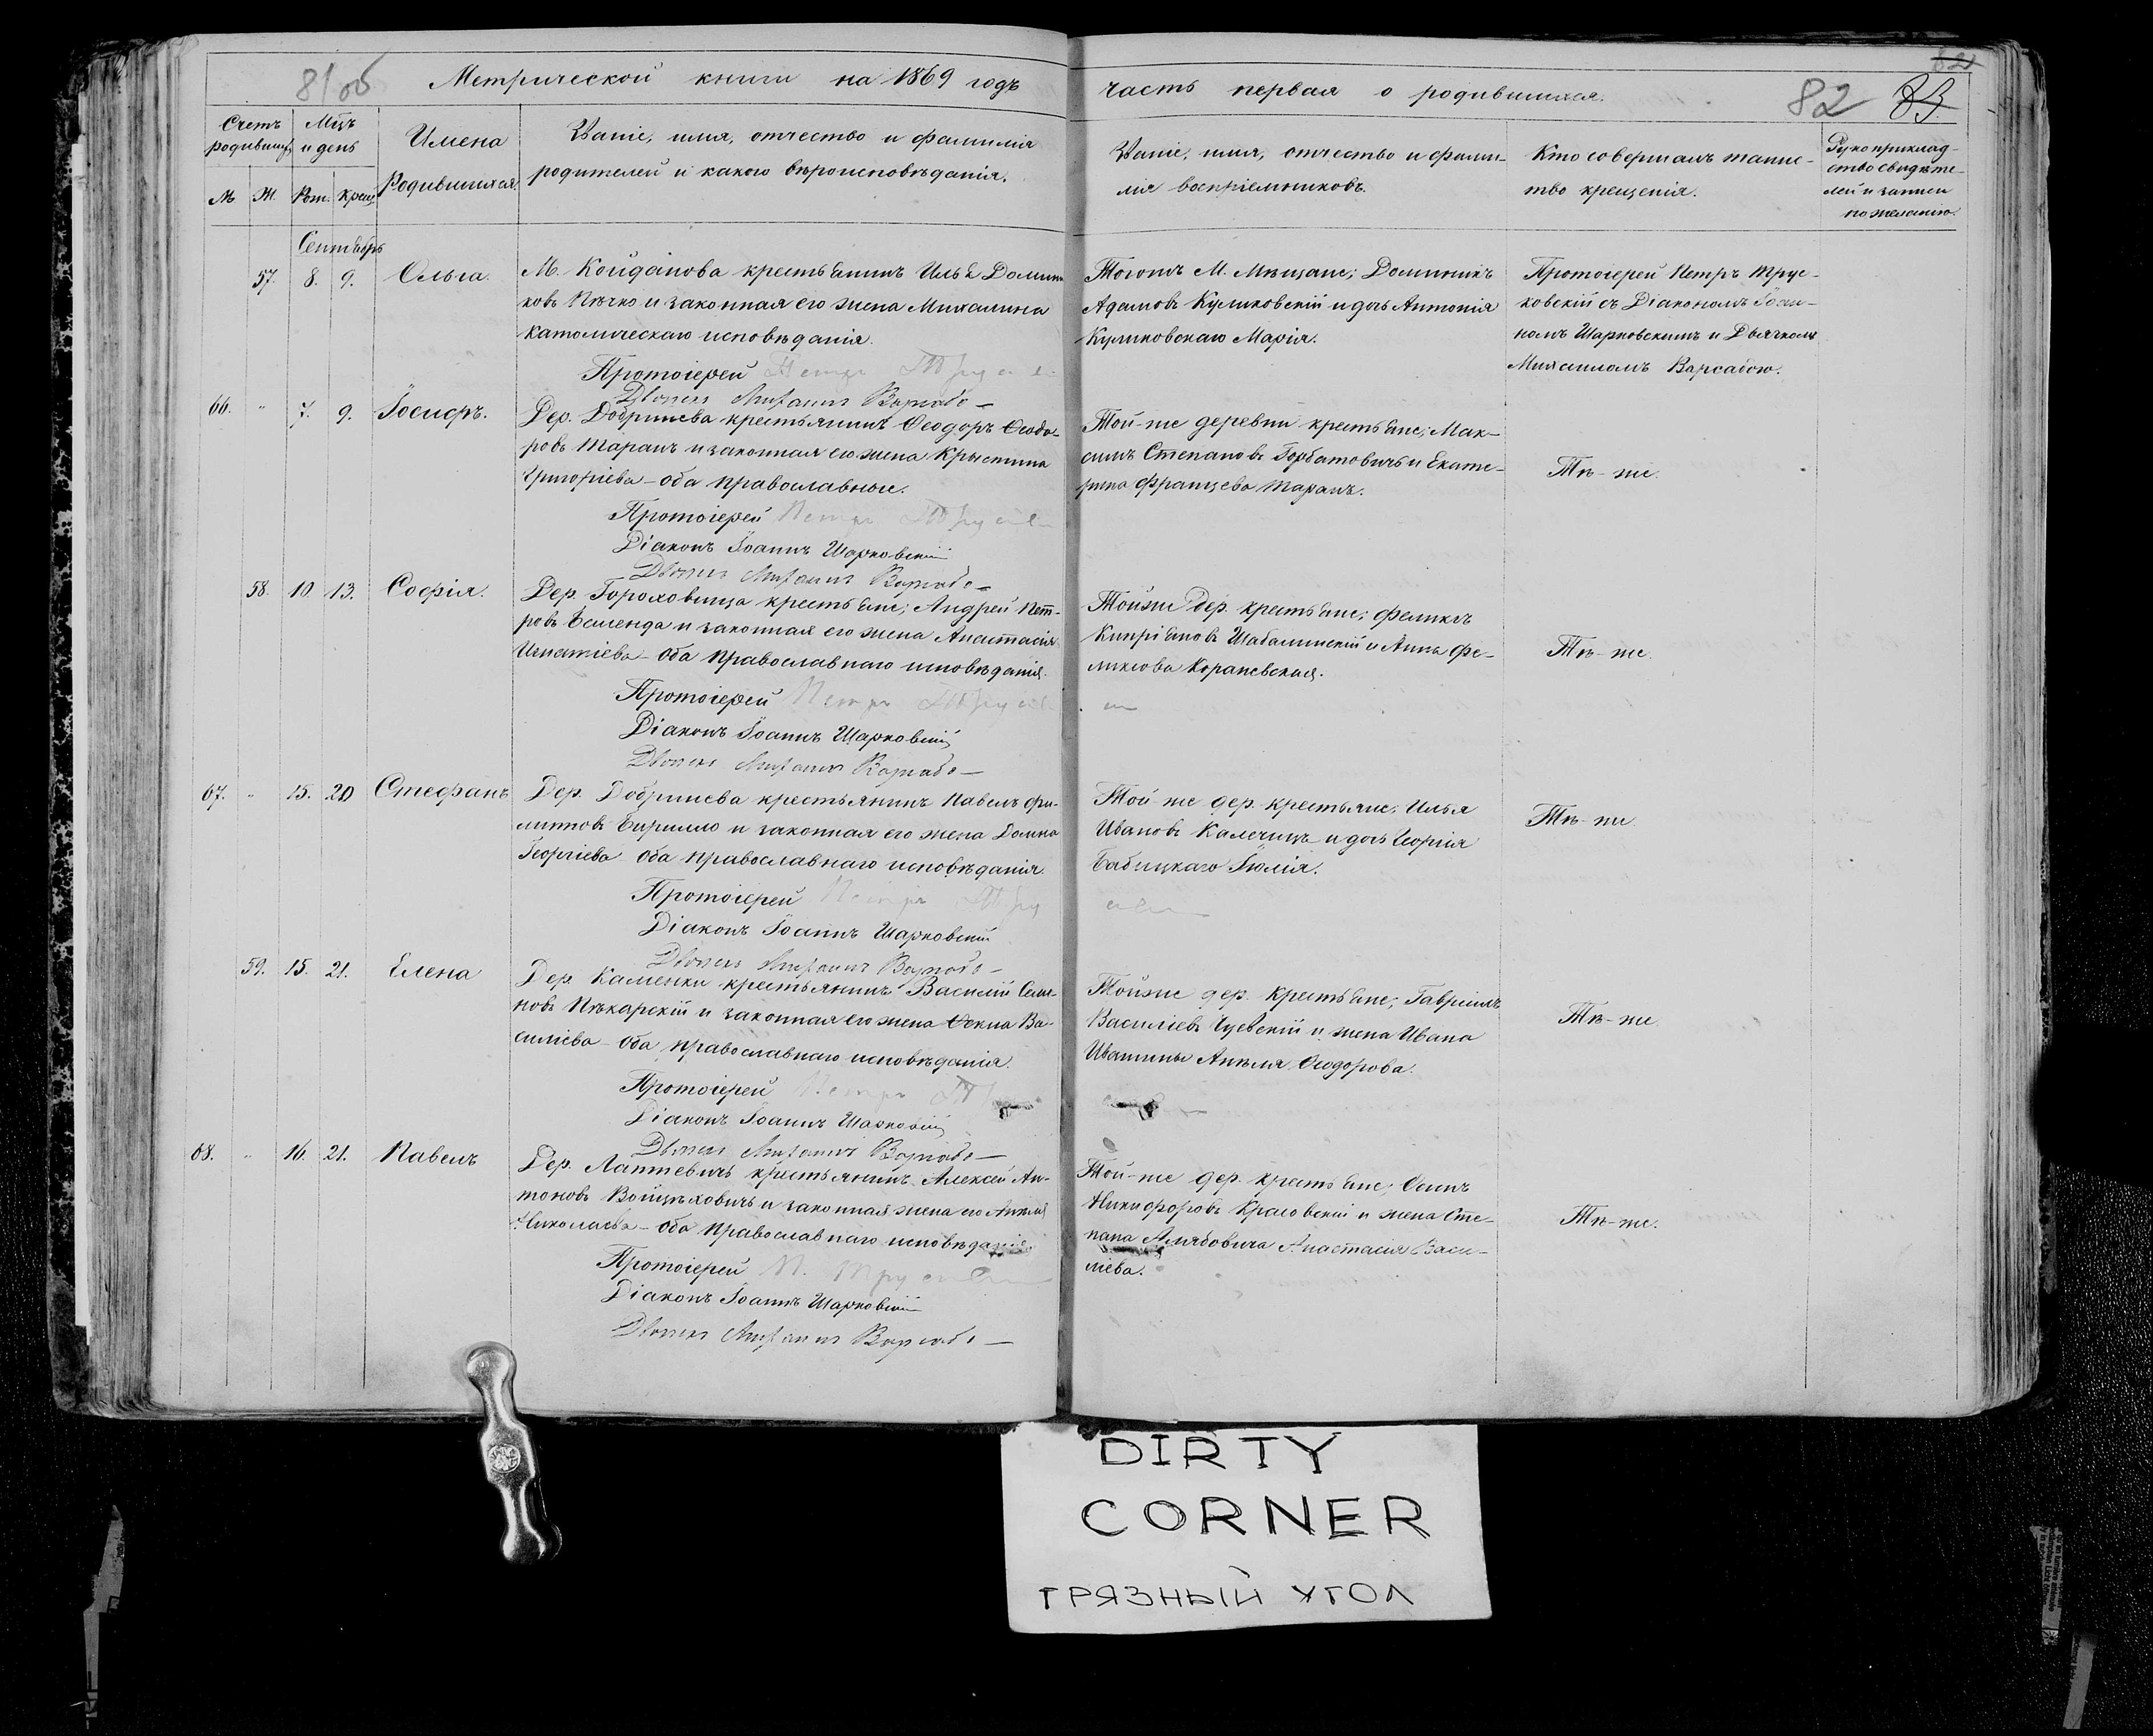 81 об
Метрической книги на 1869 годъ
часть первая о родившихся.
82
Счетъ родившихъ
Мцъ и день
Имена Родившихся.
Званіе, имя, отчество и фамилія
родителей и какого вѣроисповѣданія.
Званіе, имя, отчество и фами-
лія воспріемниковъ.
Кто совершалъ таинс-
тво крещенія.
Рукоприклад-
ство свидѣте-
лей и записи
по желанію.
М. Ж. Рож. Крещ.
Сентябрь
57. 8. 9. Ольга.
М. Койданова крестьянинъ Илья Домини
ковъ Пѣчко и законная его жена Михалина
католическаго исповѣданія.
Протоіерей Петръ
Дьячекъ Михаилъ Варсаба
Тогожъ М. Мѣщане; Доминикъ
Адамовъ Куликовскій и дочь Антонія
Куликовскаго Марія.
Протоіерей Петръ Трус-
ковскій съ Діакономъ Іоан-
номъ Шарковскимъ и Дьячкомъ
Михаиломъ Варсабою.
66. " 7. 9. Іосифъ.
Дер. Добринева крестьянинъ Ѳеодоръ Ѳеодо-
ровъ Таранъ и законная его жена Крыстина
Григоріева - оба православные.
Протоіерей Петръ
Діаконъ Іоаннъ Шарковскій
Дьячекъ Михаилъ Варсаба
Той-же деревни крестьяне; Мак-
симъ Степановъ Горбатовичъ и Екате-
рина Францева Таранъ.
Тѣ-же.
58. 10. 13. Софія.
Дер. Гороховища крестьяне; Андрей Пет-
ровъ и законная его жена Анастасія
Игнатіева - оба православнаго исповѣданія.
Протоіерей Петръ
Діаконъ Іоаннъ Шарковскій
Дьячекъ Михаилъ Варсаба
Тойже дер. крестьяне; Феликсъ
Кипріановъ Шабалинскій и Анна Фе-
ликсова Кораневская.
Тѣ-же.
67. " 15. 20 Стефанъ
Дер. Добринева крестьянинъ Павелъ Фи-
липповъ Кирилло и законная его жена Домна
Георгіева оба православнаго исповѣданія.
Протоіерей Петръ
Діаконъ Іоаннъ Шарковскій
Дьячекъ Михаилъ Варсаба
Той-же дер. крестьяне; Илья
Ивановъ Калечицъ и дочь Георгія
Бабицкаго Юлія.
Тѣ-же
59. 15. 21. Елена
Дер. Каменки крестьянинъ Василій Семе-
новъ Пѣкарскій и законная его жена Ѳекла Ва-
силіева - оба православнаго исповѣданія.
Протоіерей Петръ
Діаконъ Іоаннъ Шарковскій
Дьячекъ Михаилъ Варсаба
Тойже дер. крестьяне; Гавріилъ
Василіевъ и жена Ивана
Ивашины Анѣля Ѳеодорова.
Тѣ-же
68. " 16. 21. Павелъ
Дер. Лаппевичъ крестьянинъ Алексѣй Ан-
тоновъ Войцѣховичъ и законная жена его Анѣля
Николаева - оба православнаго исповѣданія.
Протоіерей П.
Діаконъ Іоаннъ Шарковскій
Дьячекъ Михаилъ Варсаба
Той-же дер. крестьяне; Осипъ
Никифоровъ Красовскій и жена Сте-
пана Анастасія Васи-
лева.
Тѣ-же.
DIRTY
CORNER
ГРЯЗНЫЙ УГОЛ